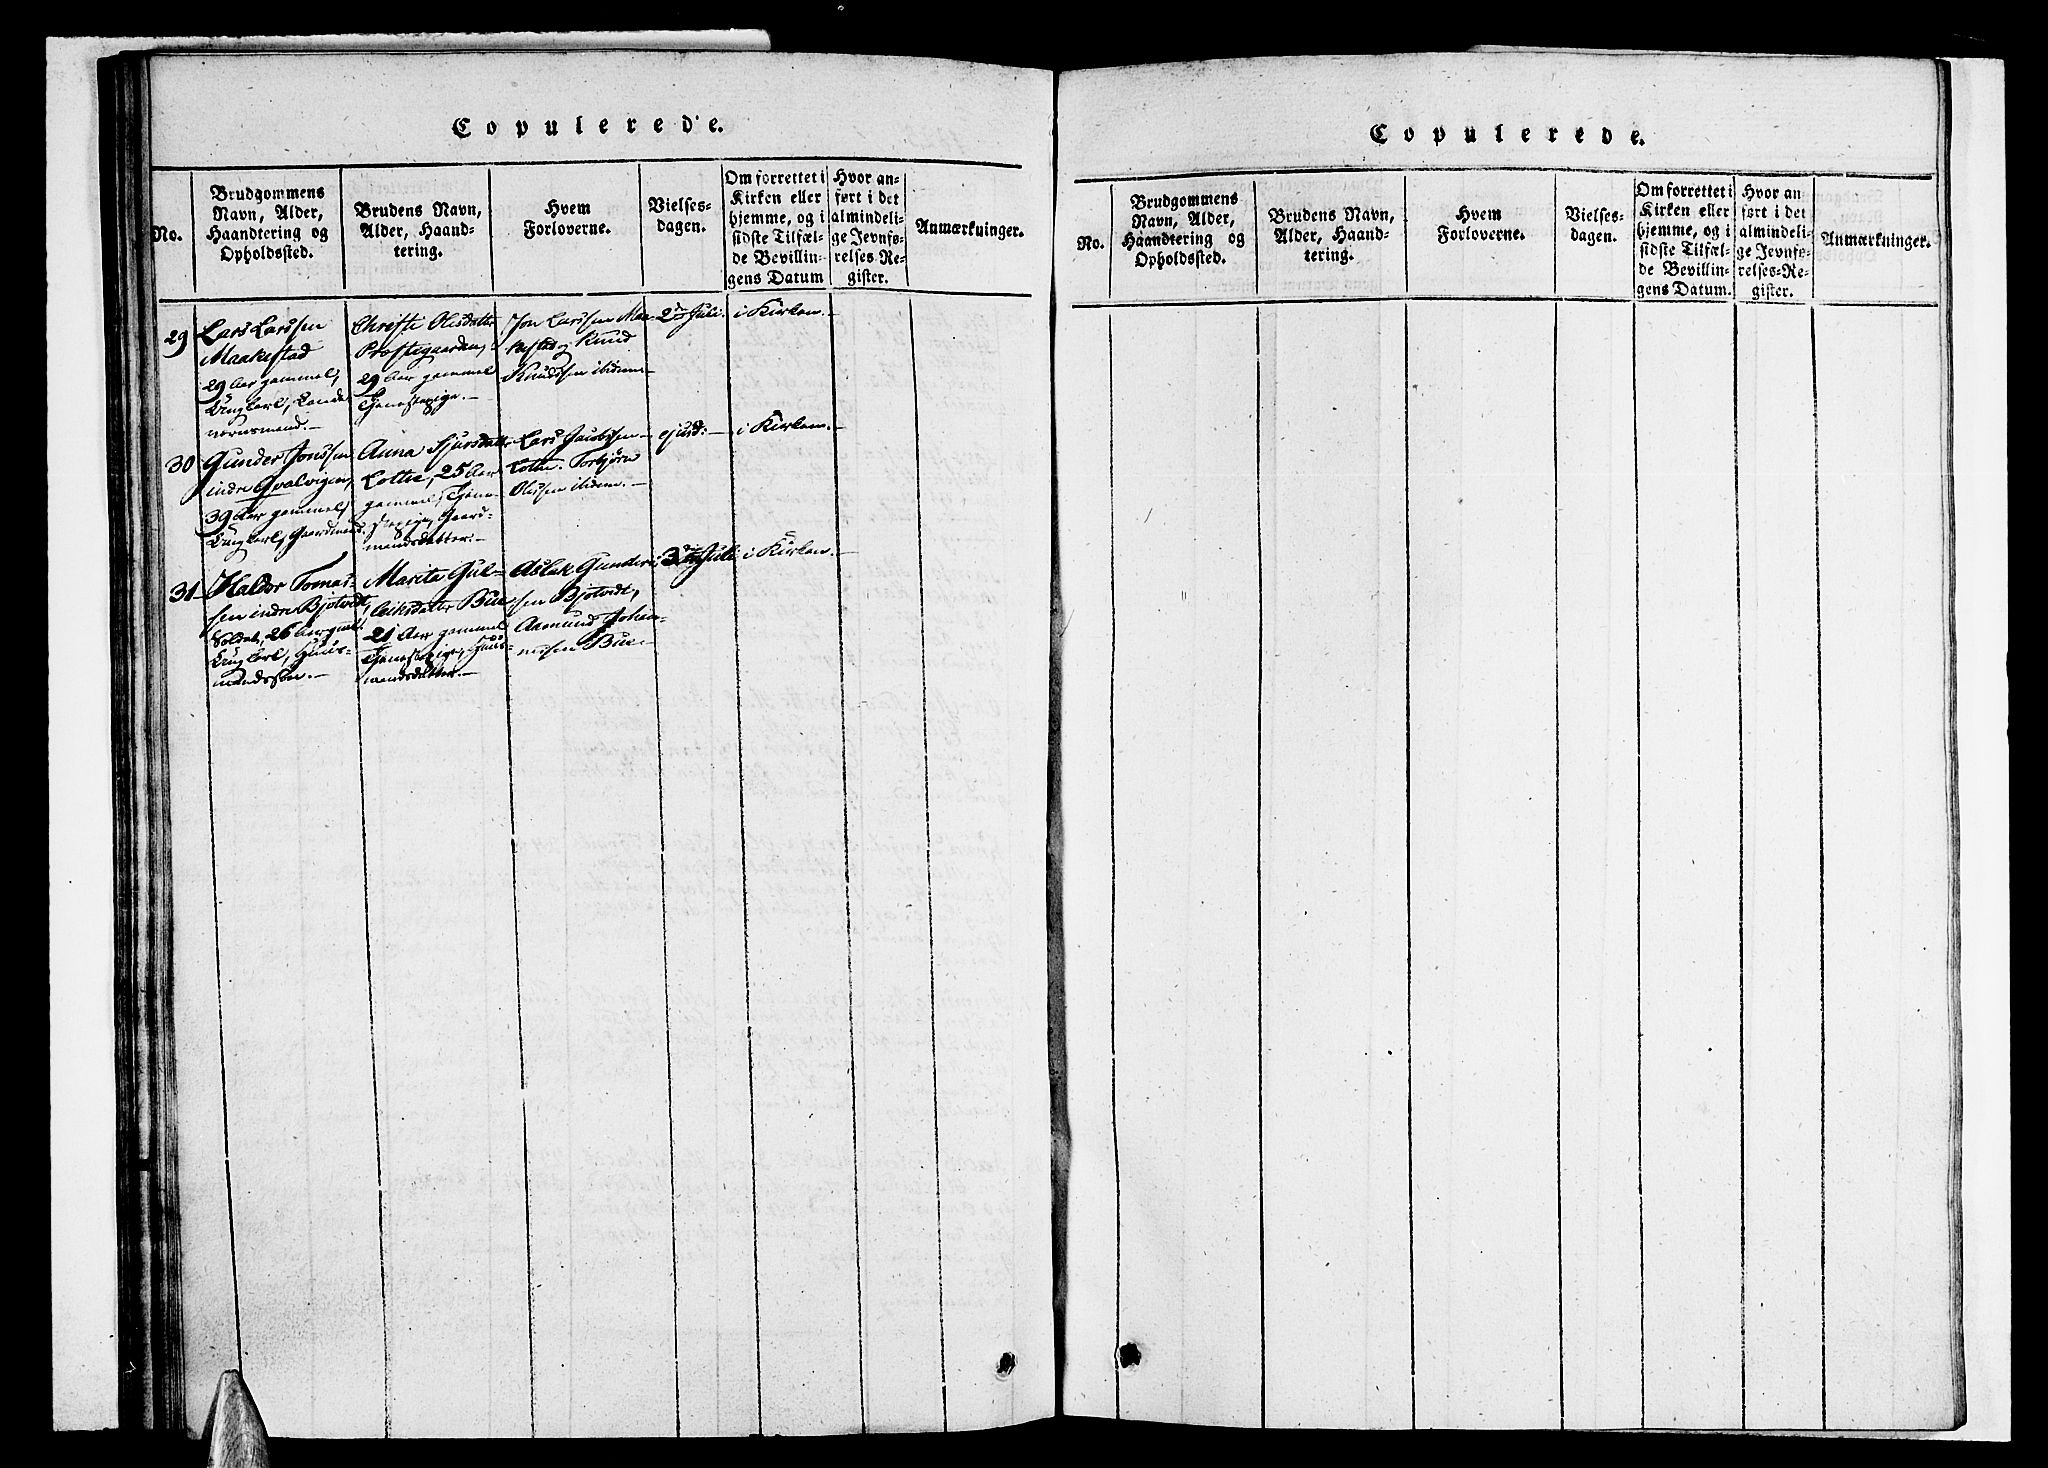 Copulerede.
No.
Brudgommens
Navn, Alder,
Haandtering og
Opholdssted.
Brudens Navn,
Alder, Haand-
tering.
Hvem
Forloverne.
Vielses-
dagen.
Om forrettet i
Kirken eller
hjemme, og i
sidste Tilfæl-
de Bevillin-
gens Datum
Hvor an-
ført i det
almindeli-
ge Jevnfø-
relses-Re-
gister.
Anmærkninger.
29
Lars Larssen
Maakestad
29 Aar gammel,
Ungkarl, Lande-
vernsmand.-
Christi Olesdatter
Præstegaarden,
29 Aar gammel
Tjenestepige.-
Jon Larssen Maa-
kestad og Knud
Knudssen ibidem-
2 Juli.
i Kirken.-
30
Gunder Jonssen
indre Qvalvigen,
39 Aar gammel,
Ungkarl, Gaardmand.
Anna Sjursdatter
Lothe, 25 Aar
gammel, Tjene-
stepige, Gaard-
mandsdatter.-
Lars Jacobssen
Lothe. Torbjørn
Olssen ibidem.-
ejusd:-
i Kirken.-
31
Haldor Tomas-
sen indre Bjotvedt,
Soldat, 26 Aar gml.
Ungkarl, Huus-
mandssøn.-
Marita Gul-
leiksdatter Bue
21 Aar gammel
Tjenestepige, Huus-
mandsdatter.-
Aslak Gunder-
sen Bjotvedt,
Aamund Johan-
nessen Bue-
3 Juli
i Kirken.-
Copulerede.
No.
Brudgommens
Navn, Alder,
Haandtering og
Opholdssted.
Brudens Navn,
Alder, Haand-
tering.
Hvem
Forloverne.
Vielses-
dagen.
Om forrettet i
Kirken eller
hjemme, og i
sidste Tilfæl-
de Bevillin-
gens Datum.
Hvor an-
ført i det
almindeli-
ge Jevnfø-
relses-Re-
gister.
Anmærkninger.